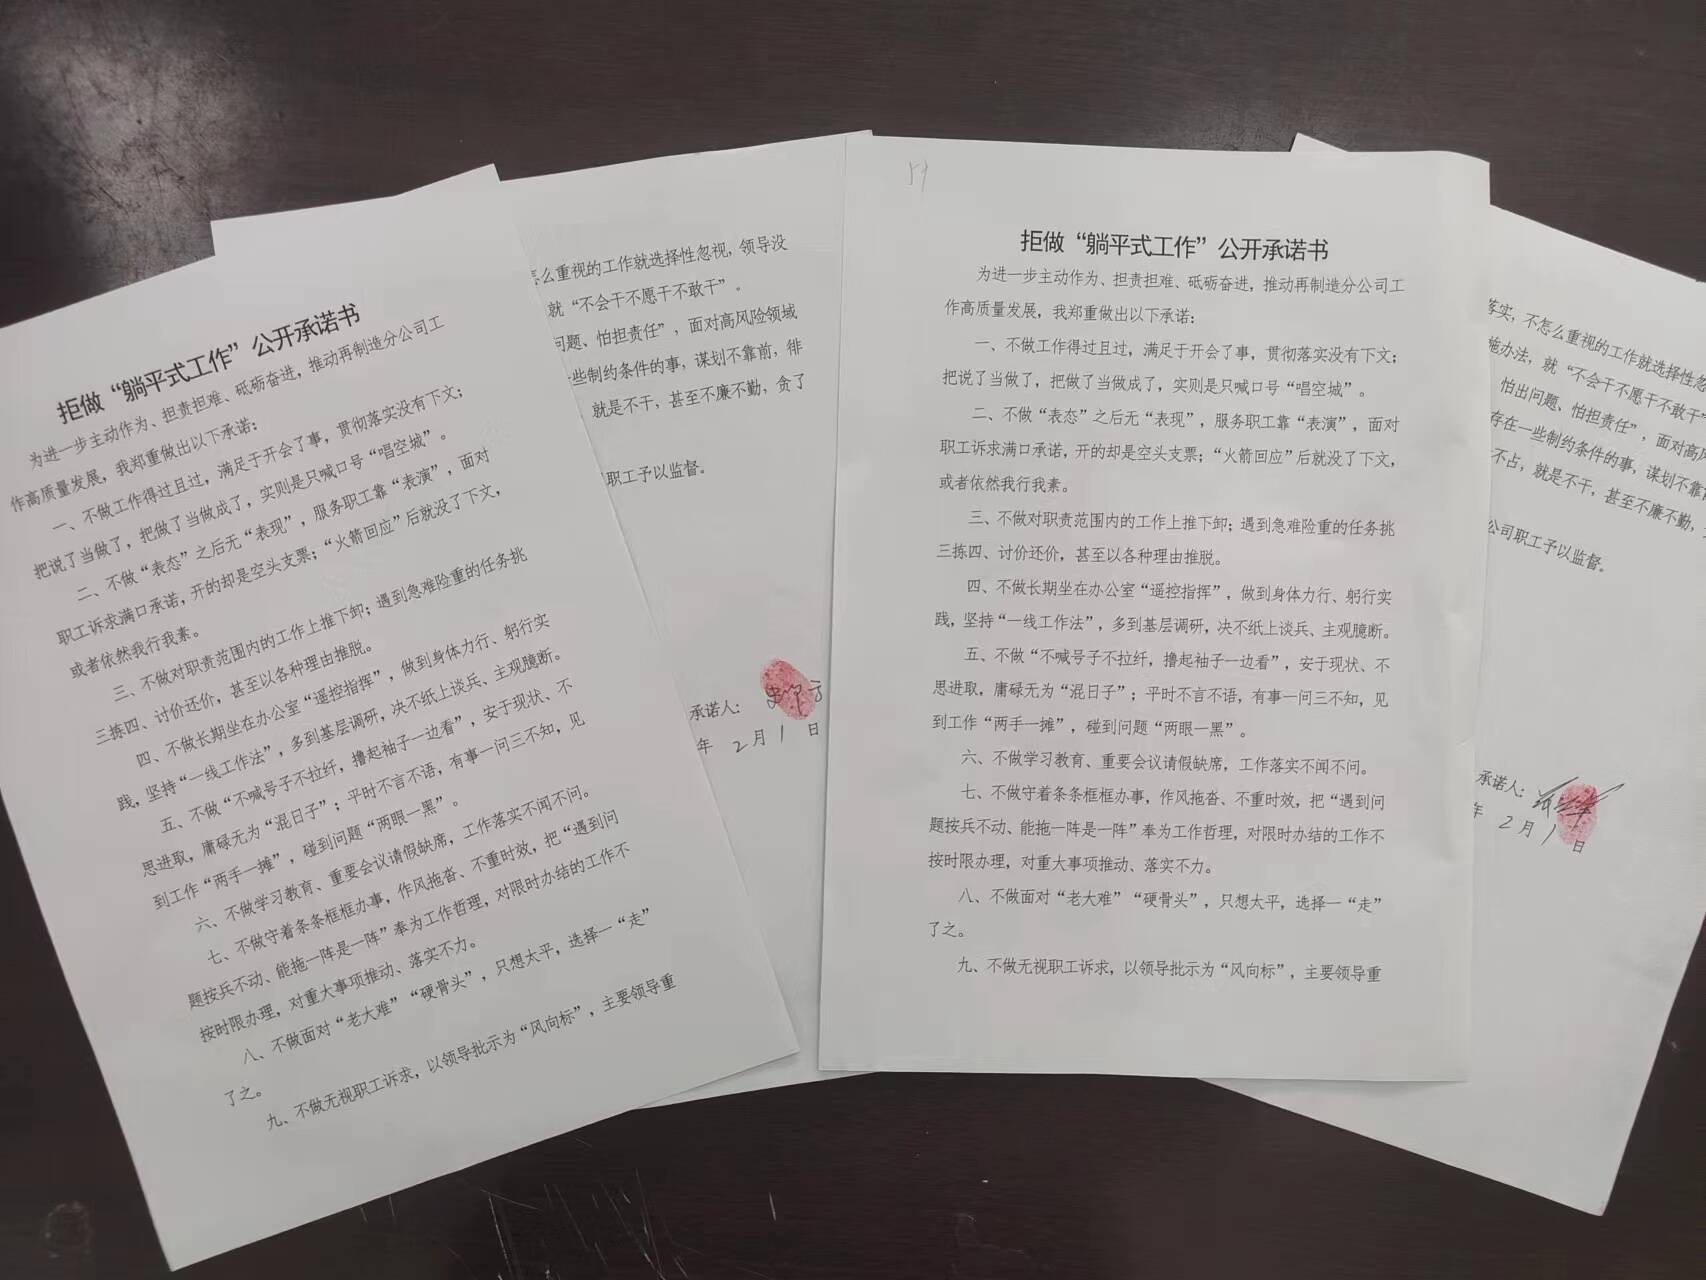 拒做“躺平式工作”公开承诺书
为进一步主动作为、担责担难、砥砺奋进，推动再制造分公司工
作高质量发展，我郑重做出以下承诺：
一、不做工作得过且过，满足于开会了事，贯彻落实没有下文；
把说了当做了，把做了当做成了，实则是只喊口号“唱空城”。
二、不做“表态”之后无“表现”，服务职工靠“表演”，面对
职工诉求满口承诺，开的却是空头支票；“火箭回应”后就没了下文，
或者依然我行我素。
三、不做对职责范围内的工作上推下卸；遇到急难险重的任务挑
三拣四、讨价还价，甚至以各种理由推脱。
四、不做长期坐在办公室“遥控指挥”，做到身体力行、躬行实
践，坚持“一线工作法”，多到基层调研，决不纸上谈兵、主观臆断。
五、不做“不喊号子不拉纤，撸起袖子一边看”，安于现状、不
思进取，庸碌无为“混日子”；平时不言不语，有事一问三不知，见
到工作“两手一摊”，碰到问题“两眼一黑”。
六、不做学习教育、重要会议请假缺席，工作落实不闻不问。
七、不做守着条条框框办事，作风拖沓、不重时效，把“遇到问
题按兵不动、能拖一阵是一阵”奉为工作哲理，对限时办结的工作不
按时限办理，对重大事项推动、落实不力。
八、不做面对“老大难”“硬骨头”，只想太平，选择一“走”
了之。
九、不做无视职工诉求，以领导批示为“风向标”，主要领导重
怎么重视的工作就选择性忽视，领导没
就“不会干不愿干不敢干”。
问题、怕担责任”，面对高风险领域
一些制约条件的事，谋划不靠前，徘
，就是不干，甚至不廉不勤，贪了
职工予以监督。
承诺人：
年 2月1日
拒做“躺平式工作”公开承诺书
为进一步主动作为、担责担难、砥砺奋进，推动再制造分公司工
作高质量发展，我郑重做出以下承诺：
一、不做工作得过且过，满足于开会了事，贯彻落实没有下文；
把说了当做了，把做了当做成了，实则是只喊口号“唱空城”。
二、不做“表态”之后无“表现”，服务职工靠“表演”，面对
职工诉求满口承诺，开的却是空头支票；“火箭回应”后就没了下文，
或者依然我行我素。
三、不做对职责范围内的工作上推下卸；遇到急难险重的任务挑
三拣四、讨价还价，甚至以各种理由推脱。
四、不做长期坐在办公室“遥控指挥”，做到身体力行、躬行实
践，坚持“一线工作法”，多到基层调研，决不纸上谈兵、主观臆断。
五、不做“不喊号子不拉纤，撸起袖子一边看”，安于现状、不
思进取，庸碌无为“混日子”；平时不言不语，有事一问三不知，见
到工作“两手一摊”，碰到问题“两眼一黑”。
六、不做学习教育、重要会议请假缺席，工作落实不闻不问。
七、不做守着条条框框办事，作风拖沓、不重时效，把“遇到问
题按兵不动、能拖一阵是一阵”奉为工作哲理，对限时办结的工作不
按时限办理，对重大事项推动、落实不力。
八、不做面对“老大难”“硬骨头”，只想太平，选择一“走”
了之。
九、不做无视职工诉求，以领导批示为“风向标”，主要领导重
落实，不怎么重视的工作就选择性忽
施办法，就“不会干不愿干不敢干”
怕出问题、怕担责任”，面对高风
存在一些制约条件的事，谋划不靠前
不占，就是不干，甚至不廉不勤，
公司职工予以监督。
承诺人：
年 2月1日